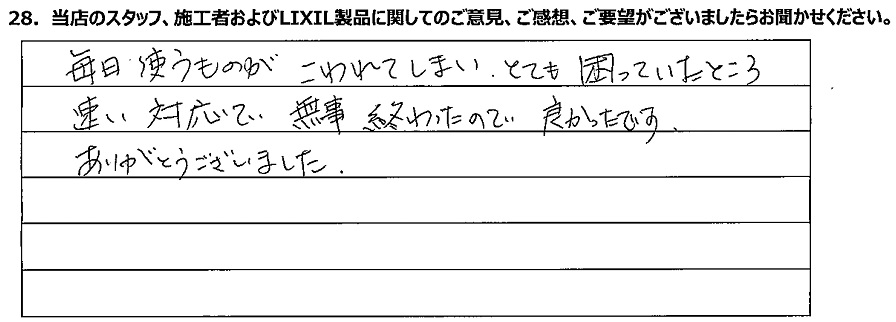 28．当店のスタッフ、施工者およびLIXIL製品に関してのご意見、ご感想、ご要望がございましたらお聞かせください。
毎日使うものが こわれてしまい、とても困っていたところ
速い 対応で、無事 終わったので、良かったです。
ありがとうございました。